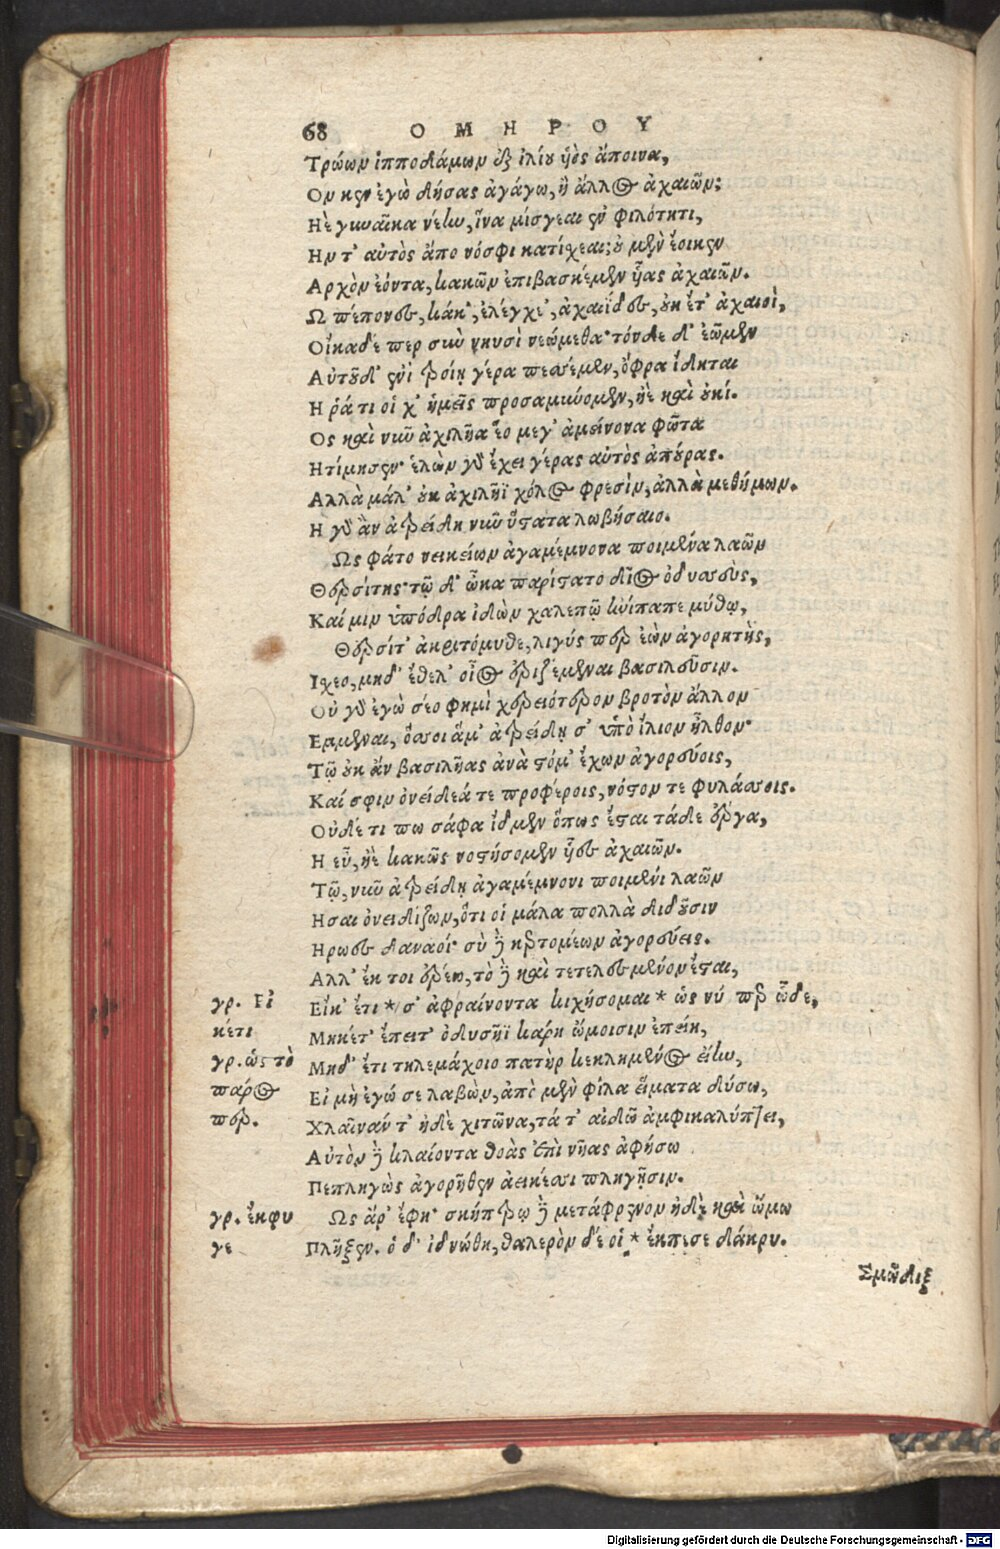 68 ΟΜΗΡΟΥ
Τρώων ἱπποδάμων ἐξ ἰλίου υἷος ἄποινα,
Ον κεν ἐγὼ δήσας ἀγάγω, ἢ ἄλλος ἀχαιῶν;
Ηὲ γυναῖκα νέην, ἵνα μίσγεαι ἐν φιλότητι,
Ην τ' αὐτὸς ἄπο νόσφι κατίσχεαι; οὐ μὲν ἔοικεν
Αρχὸν ἐόντα, κακῶν ἐπιβασκέμεν υἷας ἀχαιῶν.
Ω πέπονες, κάκ', ἐλέγχε', ἀχαιΐδες, οὐκ ἔτ' ἀχαιοὶ,
Οἴκαδέ περ σὺν νηυσὶ νεώμεθα· τόνδε δ' ἐῶμεν
Αὐτοῦ δ' ἐνὶ τροίῃ γέρα πεσσέμεν, ὄφρα ἴδηται
Η ῥά τι οἱ χ' ἡμεῖς προσαμύνομεν, ἠὲ καὶ οὐκί.
Ος καὶ νῦν ἀχιλῆα ἕο μέγ' ἀμείνονα φῶτα
Ητίμησεν· ἑλὼν γὰρ ἔχει γέρας αὐτὸς ἀπούρας.
Αλλὰ μάλ' οὐκ ἀχιλῆϊ χόλος φρεσὶν, ἀλλὰ μεθήμων.
Η γὰρ ἂν ἀτρείδη νῦν ὕστατα λωβήσαιο.
Ως φάτο νεικείων ἀγαμέμνονα ποιμένα λαῶν
Θερσίτης· τῷ δ' ὦκα παρίστατο δῖος ὀδυσσὺς,
Καί μιν ὑπόδρα ἰδὼν χαλεπῷ ἠνίπαπε μύθῳ,
Θερσίτ' ἀκριτόμυθε, λιγύς περ ἐὼν ἀγορητὴς,
Ισχεο, μηδ' ἔθελ' οἶος ἐριζέμεναι βασιλεῦσιν.
Οὐ γὰρ ἐγὼ σέο φημὶ χερειότερον βροτὸν ἄλλον
Εμμεναι, ὅσσοι ἅμ' ἀτρείδῃ σ' ὑπὸ ἴλιον ἦλθον·
Τῷ οὐκ ἄν βασιλῆας ἀνὰ στόμ' ἔχων ἀγορεύοις,
Καί σφιν ὀνείδεά τε προφέροις, νόστον τε φυλάσσοις.
Οὐδέ τι πω σάφα ἴδμεν ὅπως ἔσται τάδε ἔργα,
Η εὖ, ἠὲ κακῶς νοστήσομεν υἷες ἀχαιῶν.
Τῷ, νῦν ἀτρείδῃ ἀγαμέμνονι ποιμένι λαῶν
Ησαι ὀνειδίζων, ὅτι οἱ μάλα πολλὰ διδοῦσιν
Ηρωες δαναοί· σὺ δὲ κερτομέων ἀγορεύεις.
Αλλ' ἔκ τοι ἐρέω, τὸ δὲ καὶ τετελεσμένον ἔσται,
γρ. Εἰ Εἴκ' ἔτι * σ' ἀφραίνοντα κιχήσομαι * ὥς νύ περ ὧδε,
κέτι Μηκέτ' ἔπειτ' ὀδυσῆϊ κάρη ὤμοισιν ἐπείη,
γρ. ὡς τὸ Μηδ' ἔτι τηλεμάχοιο πατὴρ κεκλημένος εἴην,
πάρος Εἰ μὴ ἐγώ σε λαβὼν, ἀπὸ μὲν φίλα εἵματα δύσω,
περ. Χλαῖνάν τ' ἠδὲ χιτῶνα, τά τ' αἰδῶ ἀμφικαλύπτει,
Αὐτὸν δὲ κλαίοντα θοὰς ἐπὶ νῆας ἀφήσω
Πεπληγὼς ἀγορῆθεν ἀεικέσσι πληγῇσιν.
γρ. ἔκφυ Ως ἄρ' ἔφη· σκήπτρῳ δὲ μετάφρενον ἠδὲ καὶ ὤμω
γε Πλῆξεν. ὁ δ' ἰδνώθη, θαλερὸν δέ οἱ * ἔκπεσε δάκρυ.
Σμῶδιξ
Digitalisierung gefördert durch die Deutsche Forschungsgemeinschaft - DFG